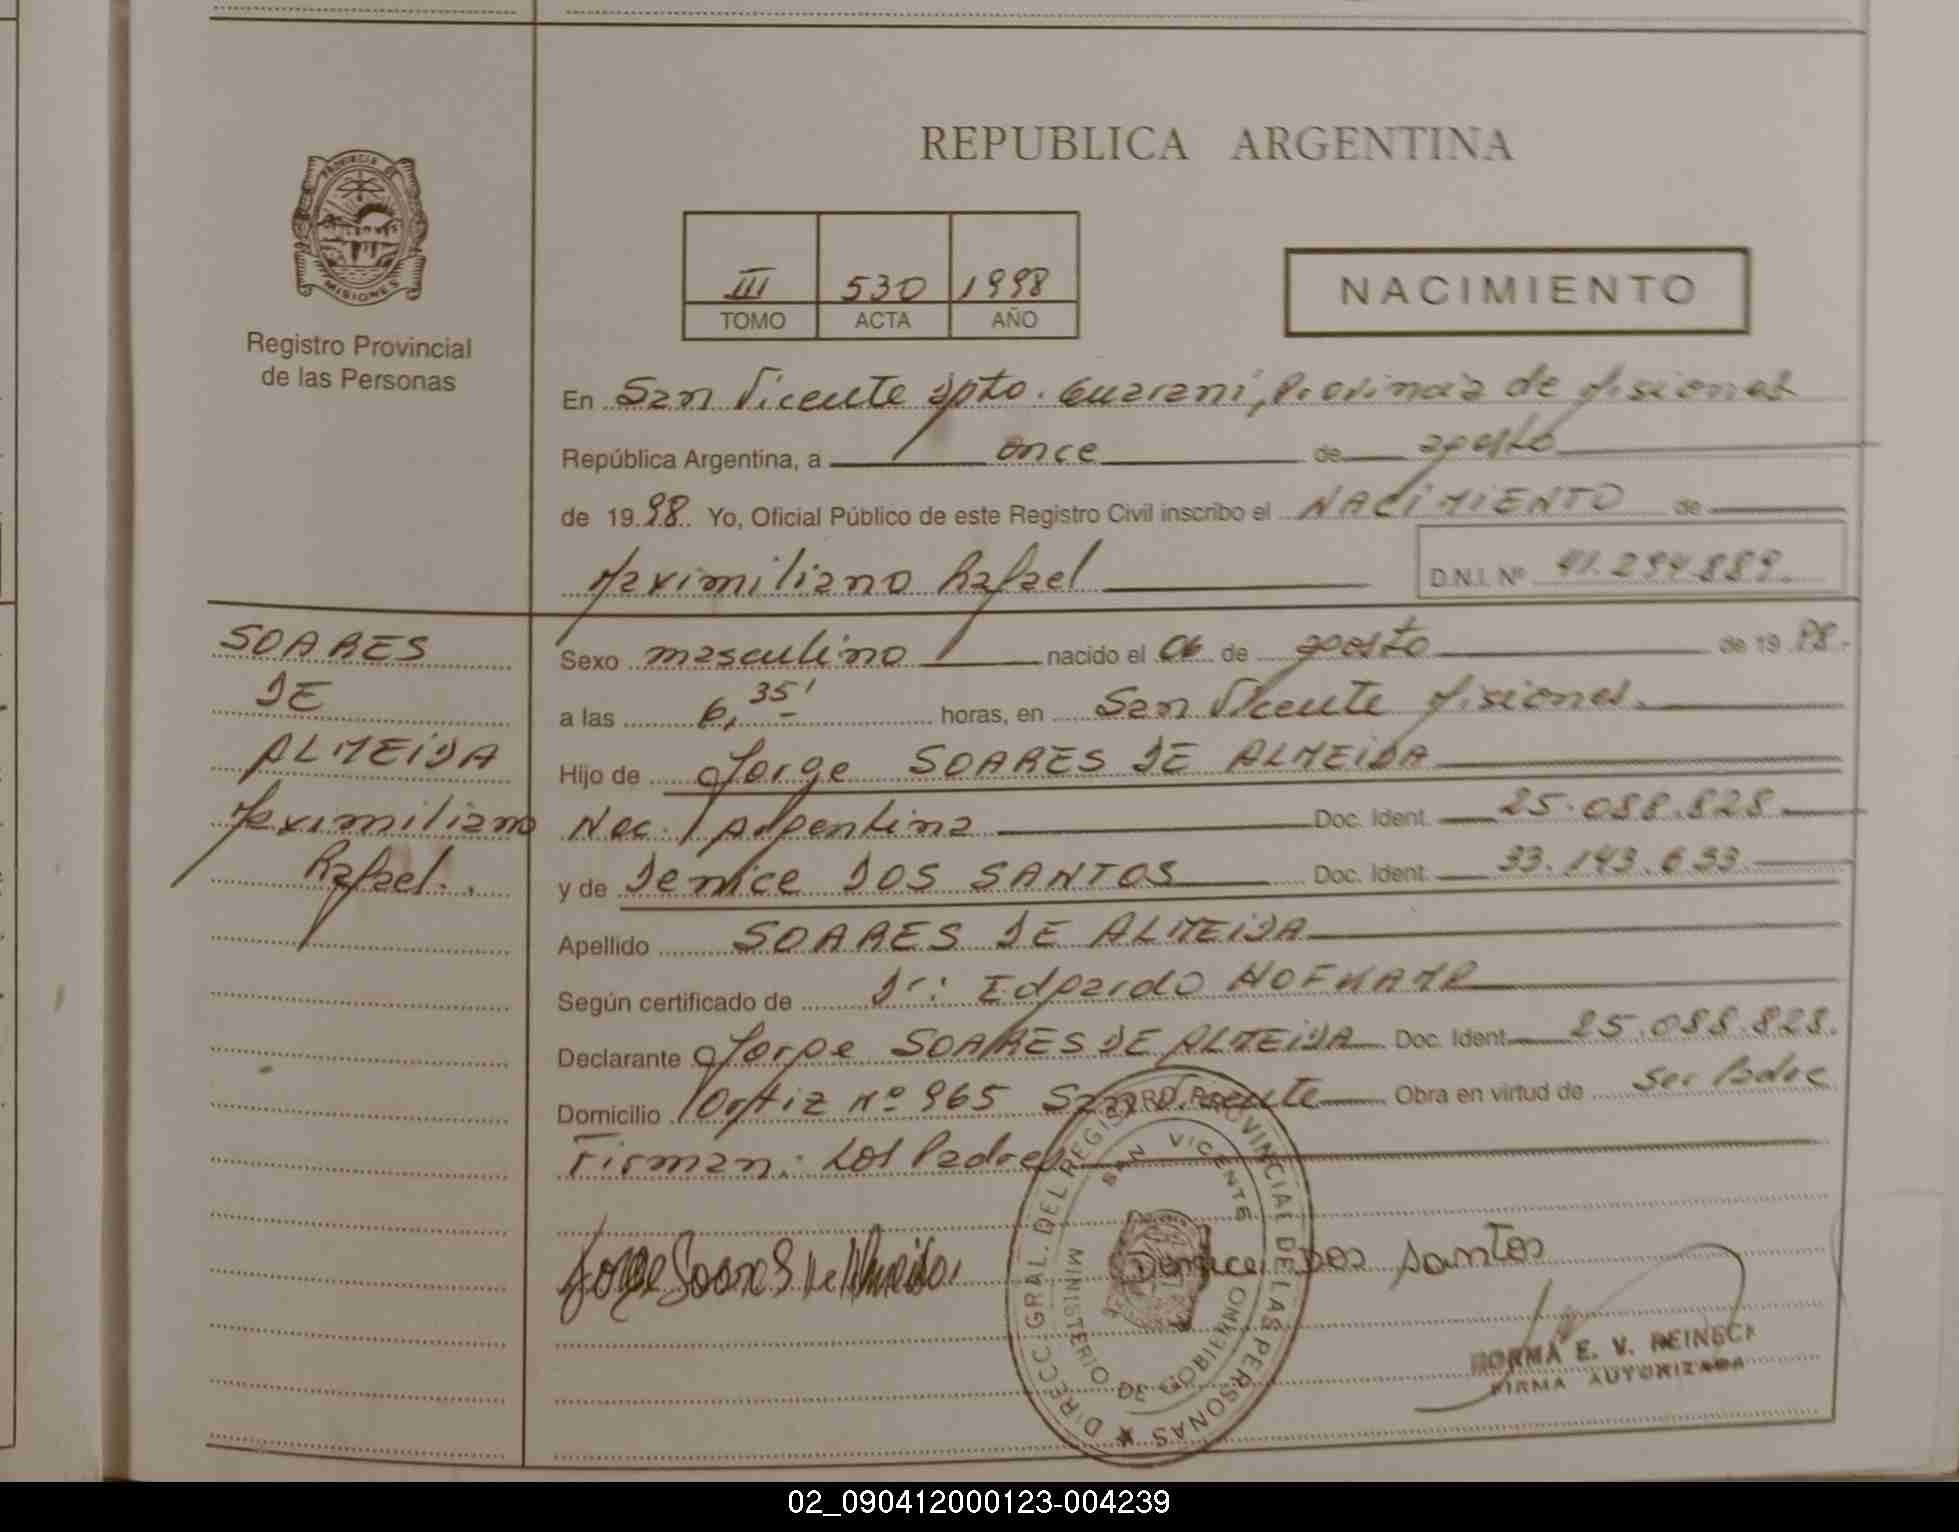 REPUBLICA ARGENTINA
PROVINCIA DE
MISIONES
Registro Provincial
de las Personas
III 530 1998
TOMO ACTA AÑO
NACIMIENTO
En San Vicente Dpto. Guarani, Provincia de Misiones
República Argentina, a once de agosto
de 1998. Yo, Oficial Público de este Registro Civil inscribo el NACIMIENTO de
Maximiliano Rafael D.N.I. Nº 41.294.889.
SOARES
DE
ALMEIDA
Maximiliano
Rafael.
Sexo masculino nacido el 06 de agosto de 1998.-
a las 6,35' horas, en San Vicente Misiones.
Hijo de Jorge SOARES DE ALMEIDA
Nac. Argentina Doc. Ident. 25.088.828
y de Denice DOS SANTOS Doc. Ident. 33.143.633.
Apellido SOARES DE ALMEIDA
Según certificado de Dr: Edgardo
Declarante Jorge SOARES DE ALMEIDA Doc. Ident. 25.088.828.
Domicilio Ortiz Nº 965 San Vicente Obra en virtud de ser Padre
Firman: Los Padres
Jorge Soares de Almeida
Denice Dos Santos
DIRECC. GRAL. DEL REGISTRO PROVINCIAL DE LAS PERSONAS
SAN VICENTE
MINISTERIO DE GOBIERNO
NORMA E. V.
FIRMA AUTORIZADA
02_090412000123-004239